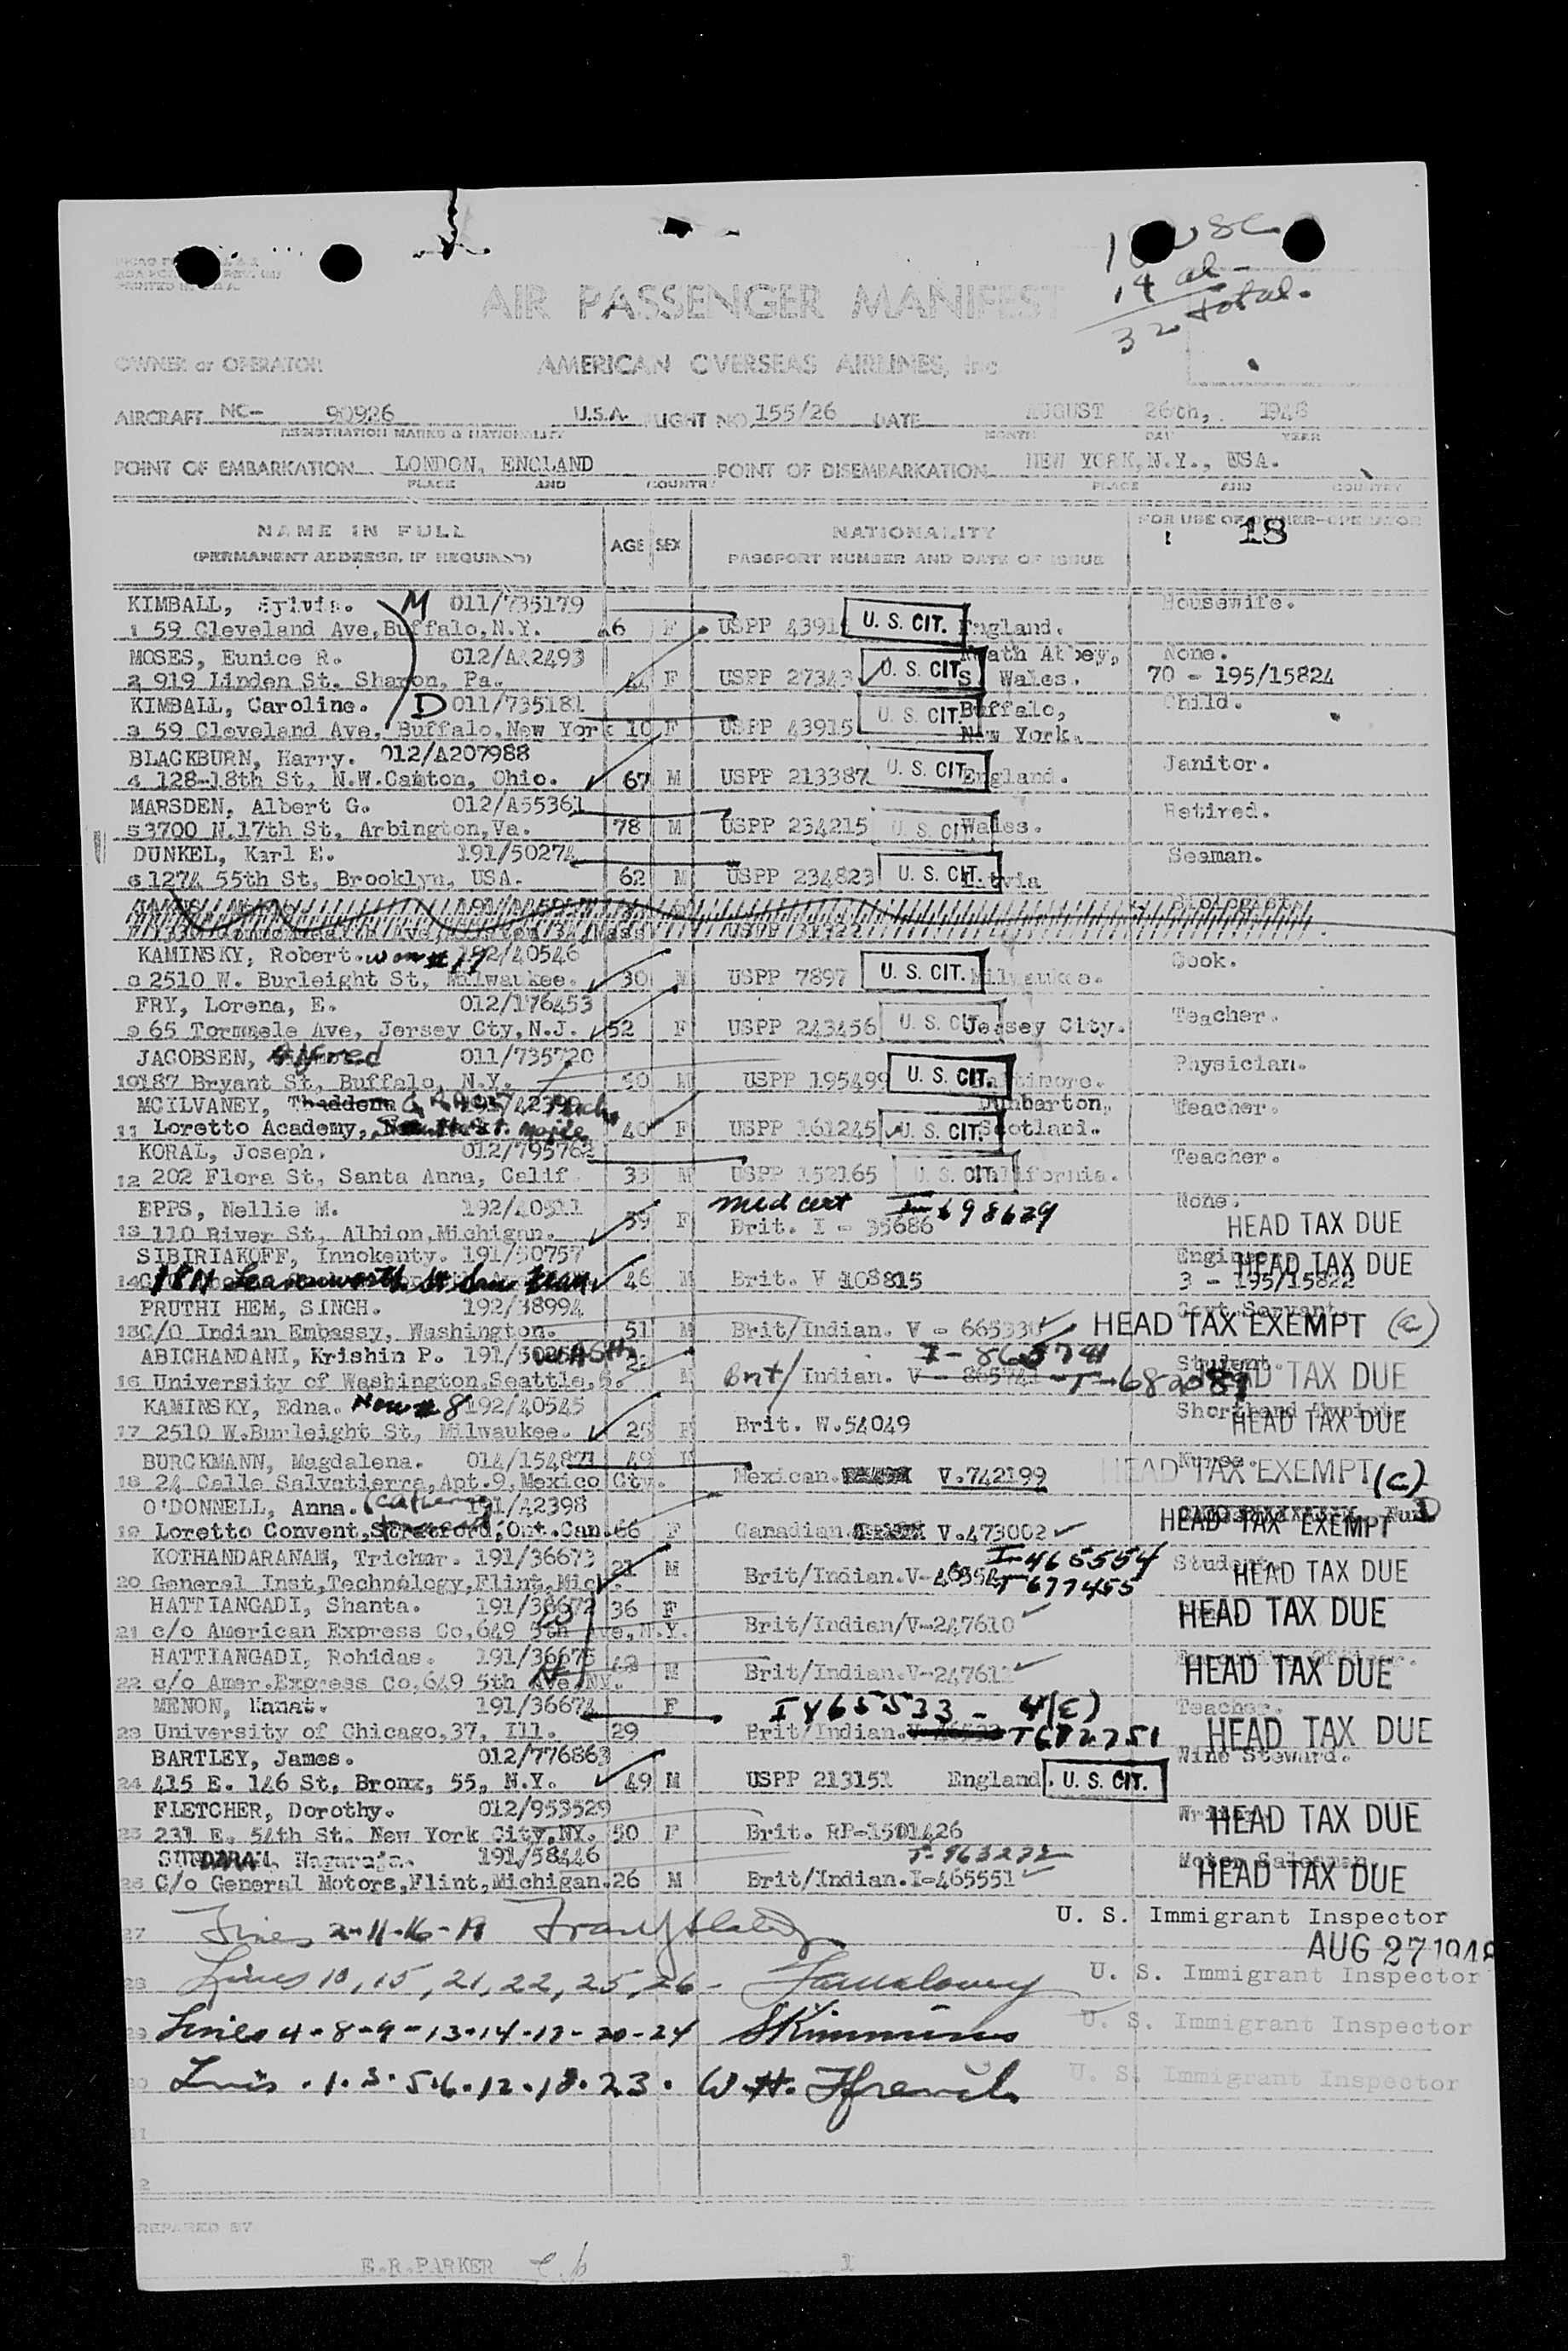 14 al-
32 total.
AIR PASSENGER MANIFEST
OWNER or OPERATOR AMERICAN OVERSEAS AIRLINES, Inc
AIRCRAFT NC- 90926 U.S.A. FLIGHT NO. 155/26 DATE AUGUST 26th, 1946
REGISTRATION MARKS & NATIONALITY MONTH DAY YEAR
POINT OF EMBARKATION LONDON, ENGLAND POINT OF DISEMBARKATION NEW YORK, N.Y., USA.
PLACE AND COUNTRY PLACE AND COUNTRY
NAME IN FULL AGE SEX NATIONALITY FOR USE OF OWNER-OPERATOR
(PERMANENT ADDRESS, IF REQUIRED) PASSPORT NUMBER AND DATE OF ISSUE 18
KIMBALL, M 011/735179 Housewife.
1 59 Cleveland Ave, Buffalo, N.Y. F USPP 4391 U. S. CIT. England.
MOSES, Eunice R. 012/A22493 Neath Abbey, None.
2 919 Linden St. Sharon, Pa. F USPP 27343 U. S. CIT. S. Wales. 70 - 195/15824
KIMBALL, Caroline. D 011/735181 Buffalo, Child.
3 59 Cleveland Ave, Buffalo, New York 10 F USPP 43915 U. S. CIT. New York.
BLACKBURN, Harry. 012/A207988 Janitor.
4 128-18th St, N.W. Canton, Ohio. 67 M USPP 213387 U. S. CIT. England.
MARSDEN, Albert G. 012/A55361 Retired.
5 3700 N.17th St, Arbington, Va. 78 M USPP 234215 U. S. CIT. Wales.
DUNKEL, Karl E. 191/50274 Seaman.
6 1274 55th St, Brooklyn, USA. 62 M USPP 234823 U. S. CIT. Latvia
Biologist.
KAMINSKY, Robert. #17 192/40546 Cook.
8 2510 W. Burleight St, Milwaukee. 30 M USPP 7897 U. S. CIT. Milwaukee.
FRY, Lorena, E. 012/176453 Teacher.
9 65 Tormmele Ave, Jersey Cty, N.J. 52 F USPP 243456 U. S. CIT. Jersey City.
JACOBSEN, Alfred 011/735720 Physician.
10 187 Bryant St, Buffalo, N.Y. 50 M USPP 195499 U. S. CIT. Baltimore.
MCILVANEY, Dunbarton, Teacher.
11 Loretto Academy, 40 F USPP 161245 U. S. CIT. Scotland.
KORAL, Joseph. 012/795762 Teacher.
12 202 Flora St, Santa Anna, Calif. 33 M USPP 152165 U. S. CIT. California.
EPPS, Nellie M. 192/40511 med cert I-698629 None.
13 110 River St, Albion, Michigan. 59 F Brit. I - 35686 HEAD TAX DUE
SIBIRIAKOFF, Innokenty. 191/50757 HEAD TAX DUE
14 Leavenworth St San Fran 46 M Brit. V 108815 3 - 195/15822
PRUTHI HEM, SINGH. 192/38994 Govt. Servant.
15 C/O Indian Embassy, Washington. 51 M Brit/Indian. V - 665330 HEAD TAX EXEMPT (a)
ABICHANDANI, Krishin P. I-865741 Student.
16 University of Washington, Seattle, 5. M Brit/Indian. V - 865741 -T-682089 HEAD TAX DUE
KAMINSKY, Edna. Now #8 192/40545
17 2510 W. Burleight St, Milwaukee. F Brit. W.54049 HEAD TAX DUE
BURCKMANN, Magdalena. 014/154871 49 F Nurse.
18 24 Calle Salvatierra, Apt.9, Mexico Cty. Mexican. V.742199 HEAD TAX EXEMPT (c)
O'DONNELL, Anna. 191/42398 Nun
19 Loretto Convent, Stratford, Ont. Can. 66 F Canadian. V.473002 HEAD TAX EXEMPT
KOTHANDARANAM, Trichur. 191/36673 21 M I-465554 Student.
20 General Inst, Technology, Flint, Mich. Brit/Indian. T677455 HEAD TAX DUE
HATTIANGADI, Shanta. 191/36672 36 F
21 c/o American Express Co, 649 5th Ave, N.Y. Brit/Indian/V-247610 HEAD TAX DUE
HATTIANGADI, Rohidas. 191/36675 M
22 c/o Amer. Express Co, 649 5th Ave, NY. Brit/Indian. V-247611 HEAD TAX DUE
MENON, Kanat. 191/36674 F I 465533 - 4(E) Teacher.
23 University of Chicago, 37, Ill. 29 Brit/Indian. T672751 HEAD TAX DUE
BARTLEY, James. 012/776863 Wine Steward.
24 415 E. 146 St, Bronx, 55, N.Y. 49 M USPP 213151 England. U. S. CIT.
FLETCHER, Dorothy. 012/953529
25 231 E. 54th St. New York City, NY. 50 F Brit. RP-1501426 HEAD TAX DUE
Nagaraja. 191/58446 Motor Salesman
26 C/o General Motors, Flint, Michigan. 26 M Brit/Indian. I-465551 HEAD TAX DUE
27 Lines 2-11-16-19 U. S. Immigrant Inspector
AUG 27 1946
28 Lines 10, 15, 21, 22, 25, 26 - U. S. Immigrant Inspector
29 Lines 4-8-9-13-14-17-20-24 U. S. Immigrant Inspector
Lines .1.3.5.6.12.18.23. W. H. Ffrench U. S. Immigrant Inspector
PREPARED BY
E.R.PARKER 1